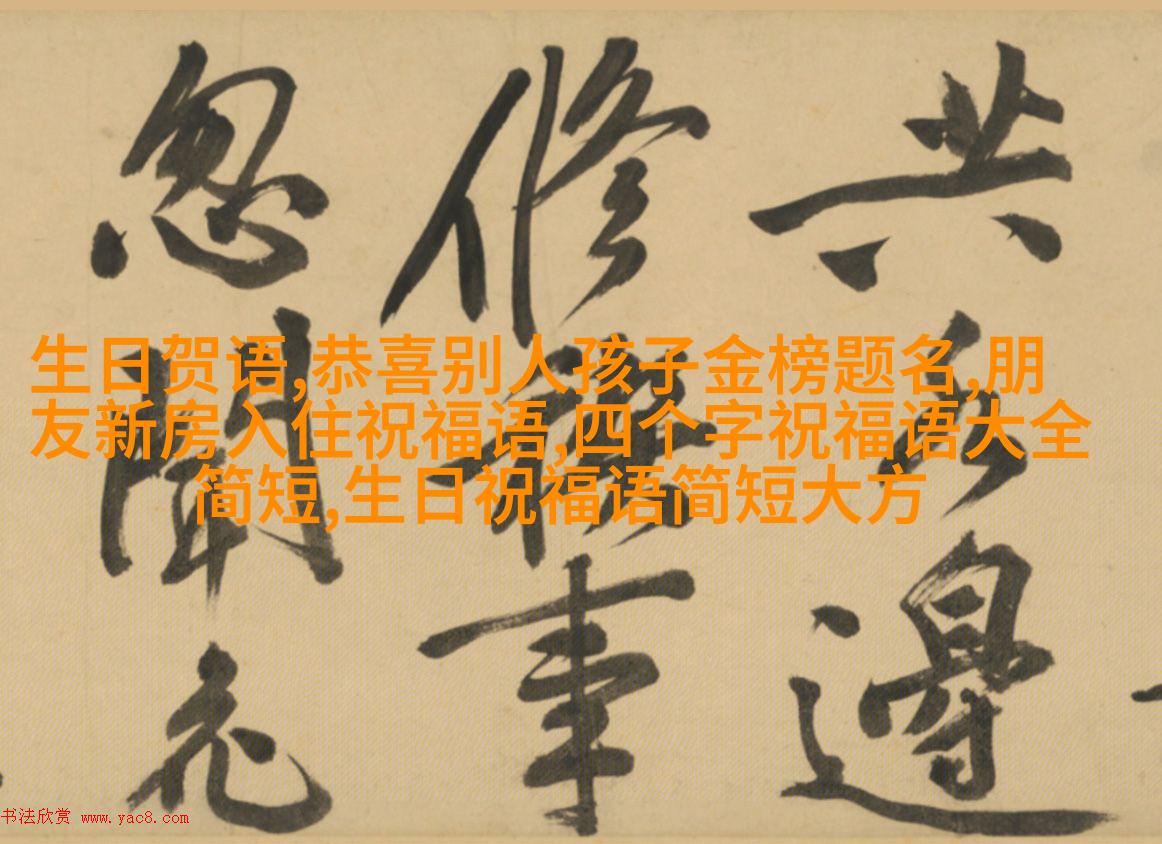 共邊
修禊事
忽聞
生日贺语,恭喜别人孩子金榜题名,朋
友新房入住祝福语,四个字祝福语大全
简短,生日祝福语简短大方
书法欣赏 www.yac8.com